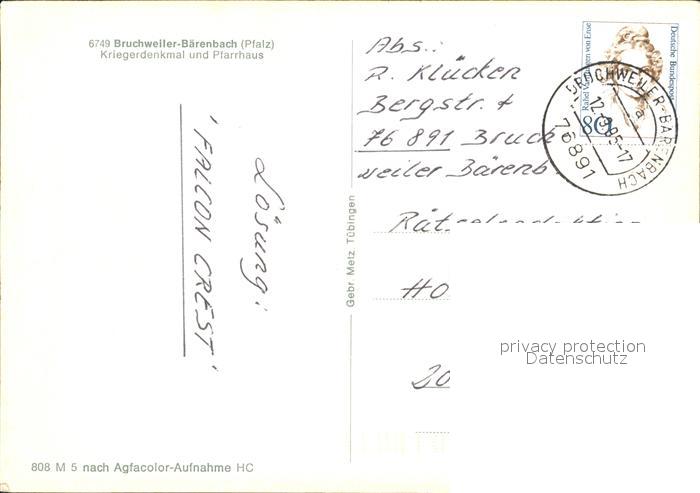 6749 Bruchweiler-Bärenbach (Pfalz)
Kriegerdenkmal und Pfarrhaus
Lösung:
'FALCON CREST'
808 M 5 nach Agfacolor-Aufnahme HC
Gebr. Metz Tübingen
Abs.:
R. Klücken
Bergstr. 7
76 891 Bruch
weiler Bärenb.
HO
20
Deutsche Bundespost
Rahel Varnhagen von Ense
80
BRUCHWEILER-BÄRENBACH
a
76891
privacy protection
Datenschutz